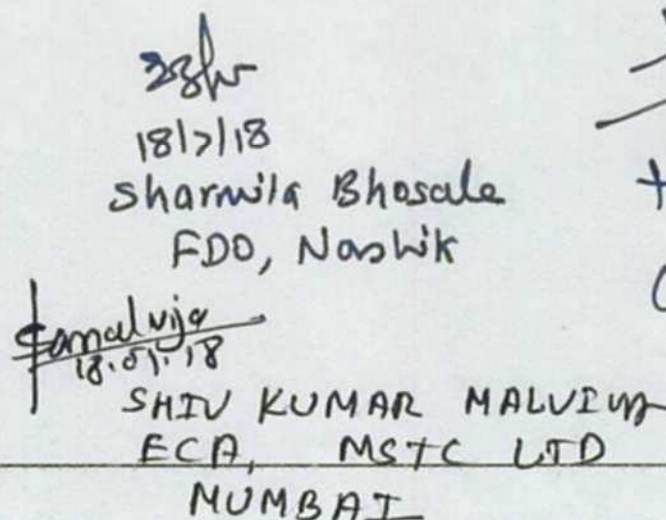 18/7/18
Sharmila Bhosale
FDO, Nashik
18.07.18
SHIV KUMAR MALVIYA
ECA, MSTC LTD
MUMBAI